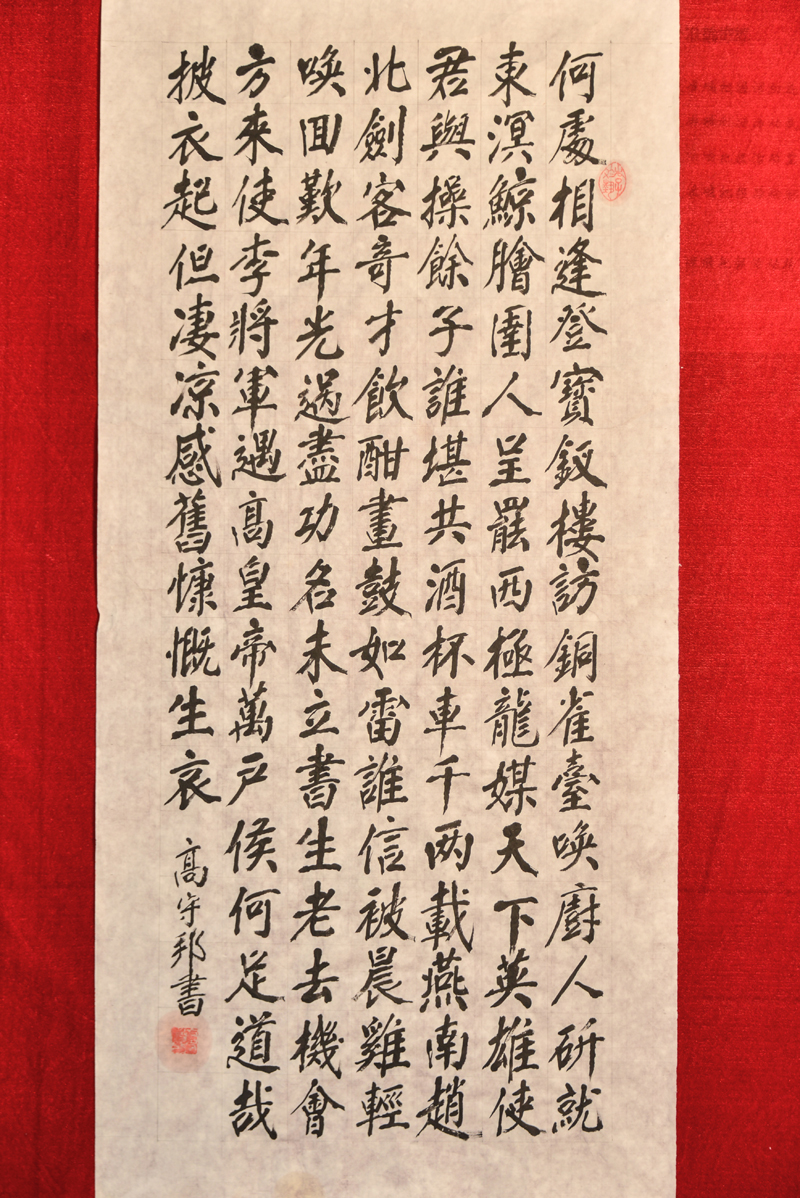 何處相逢登寶釵樓訪銅雀臺喚廚人斫就
東溟鯨膾圉人呈罷西極龍媒天下英雄使
君與操餘子誰堪共酒杯車千两載燕南趙
北劍客奇才飲酣畫鼓如雷誰信被晨雞輕
喚回歎年光過盡功名未立書生老去機會
方來使李將軍遇高皇帝萬戶侯何足道哉
披衣起但凄凉感舊慷慨生哀
高守邦書